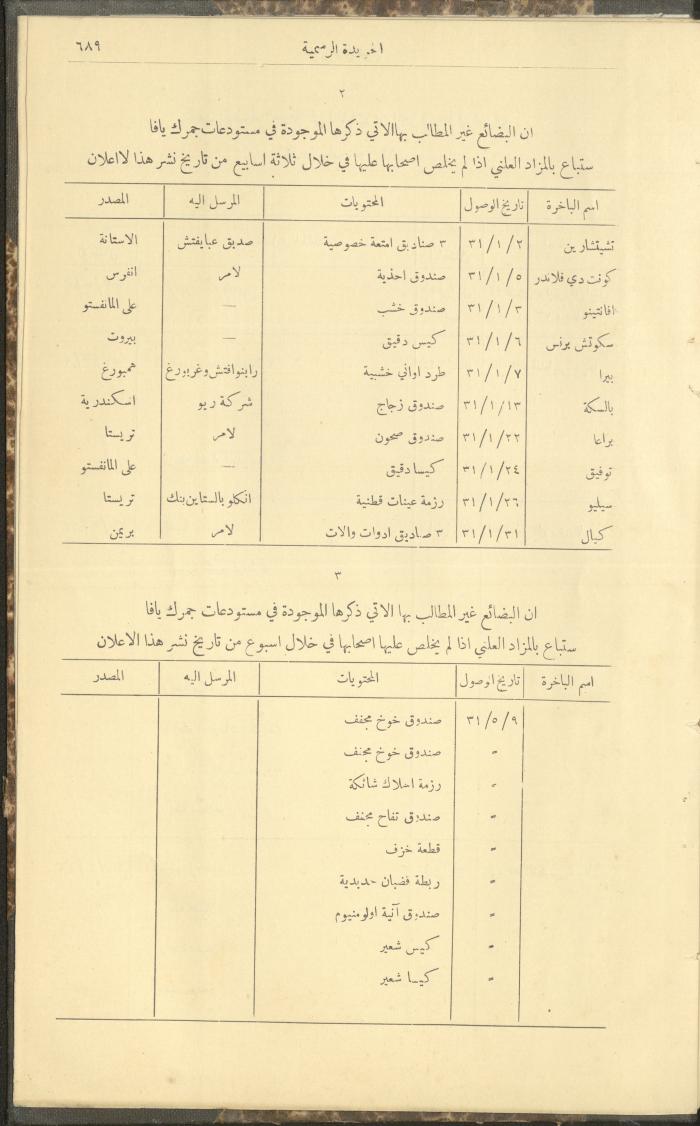 الجريدة الرسمية ٦٨٩
٢
ان البضائع غير المطالب بها الاتي ذكرها الموجودة في مستودعات جمرك يافا
ستباع بالمزاد العلني اذا لم يخلص اصحابها عليها في خلال ثلاثة اسابيع من تاريخ نشر هذا لااعلان
اسم الباخرة تاريخ الوصول المحتويات المرسل اليه المصدر
تشيتشارين ٣١/١/٢ ٣ صناديق امتعة خصوصية صديق عبايفتش الاستانة
كونت دي فلاندر ٣١/١/٥ صندوق احذية لامر انفرس
افانتينو ٣١/١/٣ صندوق خشب — على المانفستو
سكوتش برنس ٣١/١/٦ كيس دقيق — بيروت
بيرا ٣١/١/٧ طرد اواني خشبية رابنوافتش وغربورغ همبورغ
بالسكة ٣١/١/١٣ صندوق زجاج شركة ريو اسكندرية
براعا ٣١/١/٢٢ صندوق صحون لامر تريستا
توفيق ٣١/١/٢٤ كيسا دقيق — على المانفستو
سيليو ٣١/١/٢٦ رزمة عينات قطنية انكلو بالستاين بنك تريستا
كيال ٣١/١/٣١ ٣ صناديق ادوات والات لامر بريمن
٣
ان البضائع غير المطالب بها الاتي ذكرها الموجودة في مستودعات جمرك يافا
ستباع بالمزاد العلني اذا لم يخلص عليها اصحابها في خلال اسبوع من تاريخ نشر هذا الاعلان
اسم الباخرة تاريخ الوصول المحتويات المرسل اليه المصدر
٣١/٥/٩ صندوق خوخ مجفف
" صندوق خوخ مجفف
" رزمة اسلاك شائكة
" صندوق تفاح مجفف
" قطعة خزف
" ربطة قضبان حديدية
" صندوق آنية اولومنيوم
" كيس شعير
" كيسا شعير